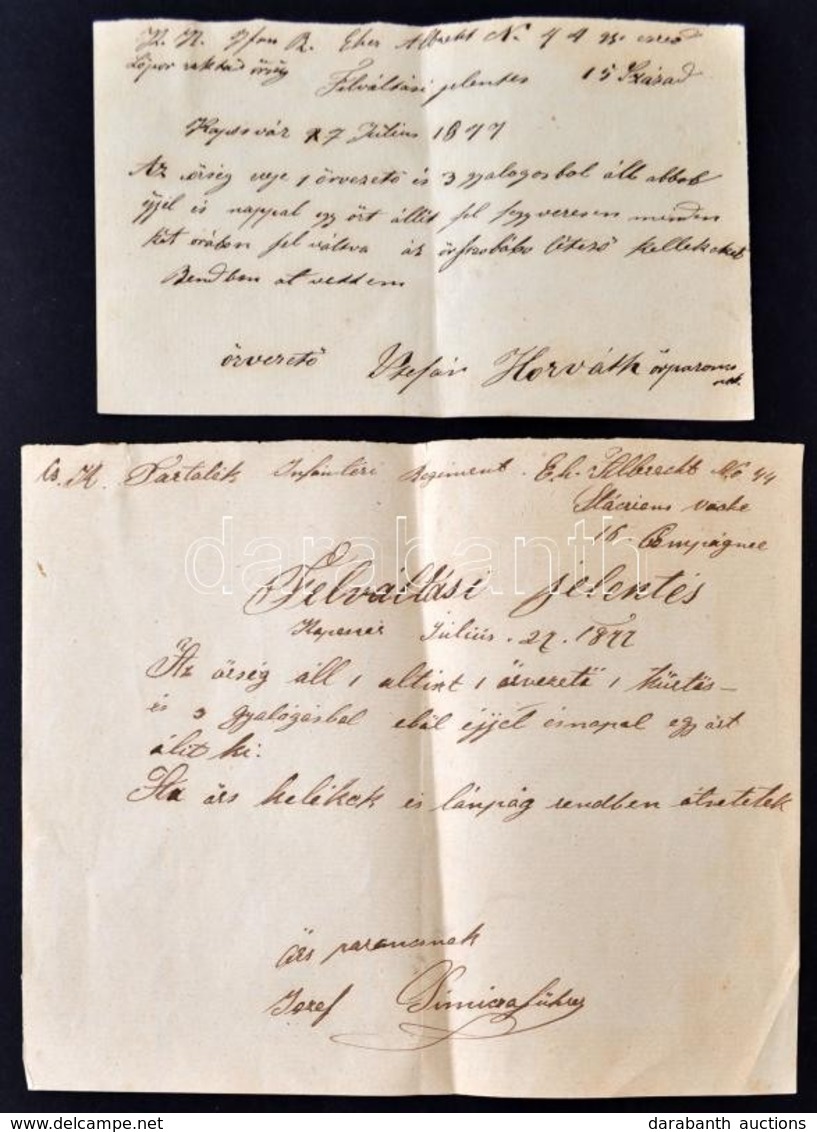 K. K. Ifan R. Eher Albrekt N. 44
Lőpor raktár őrség
Felváltási jelentes 15 Század
Kaposvár 27 Július 1877
Az őrség eeje 1 örvezető és 3 gyalogosbol áll abbol
éjjel és nappal egy őrt állit fel fegyveresen minden
két órában fel váltva áz őrszobába létező kellekeket
Rendben át vettem
örvezető Stefán Horváth őrparancs
nok.
Cs. K. Tartalék Infantéri Regiment. E.h. Albrecht No 44
vache
15 Compágnee
Felváltási jelentés
Kaposvár Július. 27. 1877
Az őrség áll 1 altiszt 1 őrvezetö 1 kürtös
és 3 gyalógósbol ebál éjjel ésnapal egy őrt
álit ki.
Az örs kelékok és lánpág rendben átvetetek
őrs parancsnok
Jozef Simicza führer
darabanth
darabanth auctions